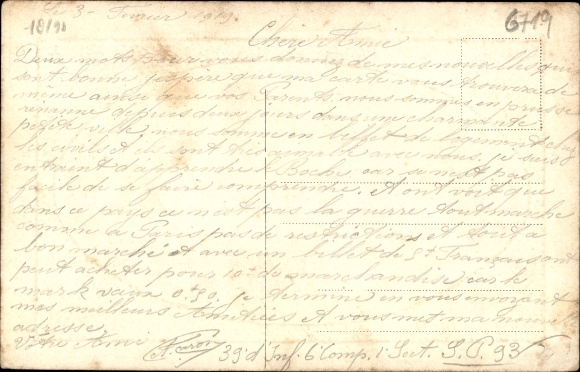 18/98
6719
Le 3 - Fevrier 1919.
Chère Amie
Deux mots pour vous donner de mes nouvelles qui
sont bonne j'espère que ma carte vous trouvera de
même ainsi que vos Parents, nous sommes en prusse
rénanne depuis deux jours dans une charmante
petite ville, nous somme en billet de logement chez
les civils et ils sont très aimable avec nous, je suis
entraint d'apprendre le Boche car se n'est pas
facile de se faire comprendre. Aont voit que
dans ce pays ce n'est pas la guerre tout marche
comme a Paris pas de restrictions et tout a
bon marché et avec un billet de 5f Français ont
peut acheter pour 10f de marchandise car le
mark vaux 0f50. je termine en vous envoyant
mes meilleurs Amitiées et vous met ma nouvelle
adresse.
Votre Ami
39e d'Inf. 6 Comp. 1 Sect. S. P. 93